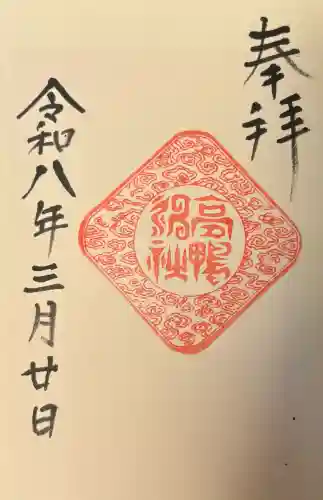 奉拝
高鴨
神社
令和八年三月廿日